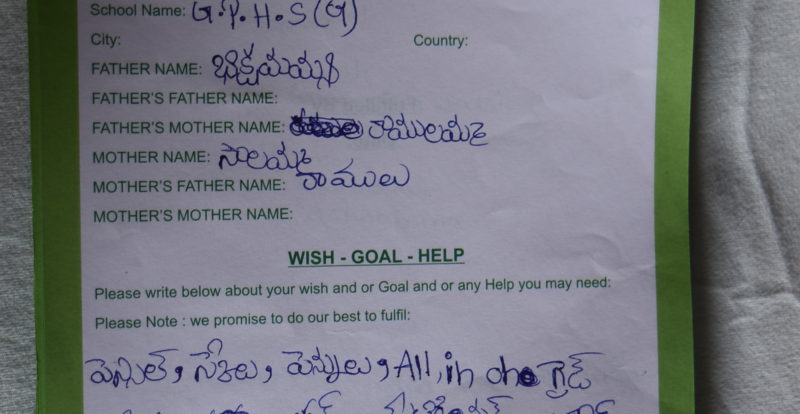 School Name: G.P.H.S(G)
City: Country:
FATHER NAME: భిక్షమయ్య
FATHER'S FATHER NAME:
FATHER'S MOTHER NAME: రాములమ్మ
MOTHER NAME: సాలమ్మ
MOTHER'S FATHER NAME: రాములు
MOTHER'S MOTHER NAME:
WISH - GOAL - HELP
Please write below about your wish and or Goal and or any Help you may need:
Please Note : we promise to do our best to fulfil:
పెన్సిల్, పెన్నులు, All, in one గ్రైడ్